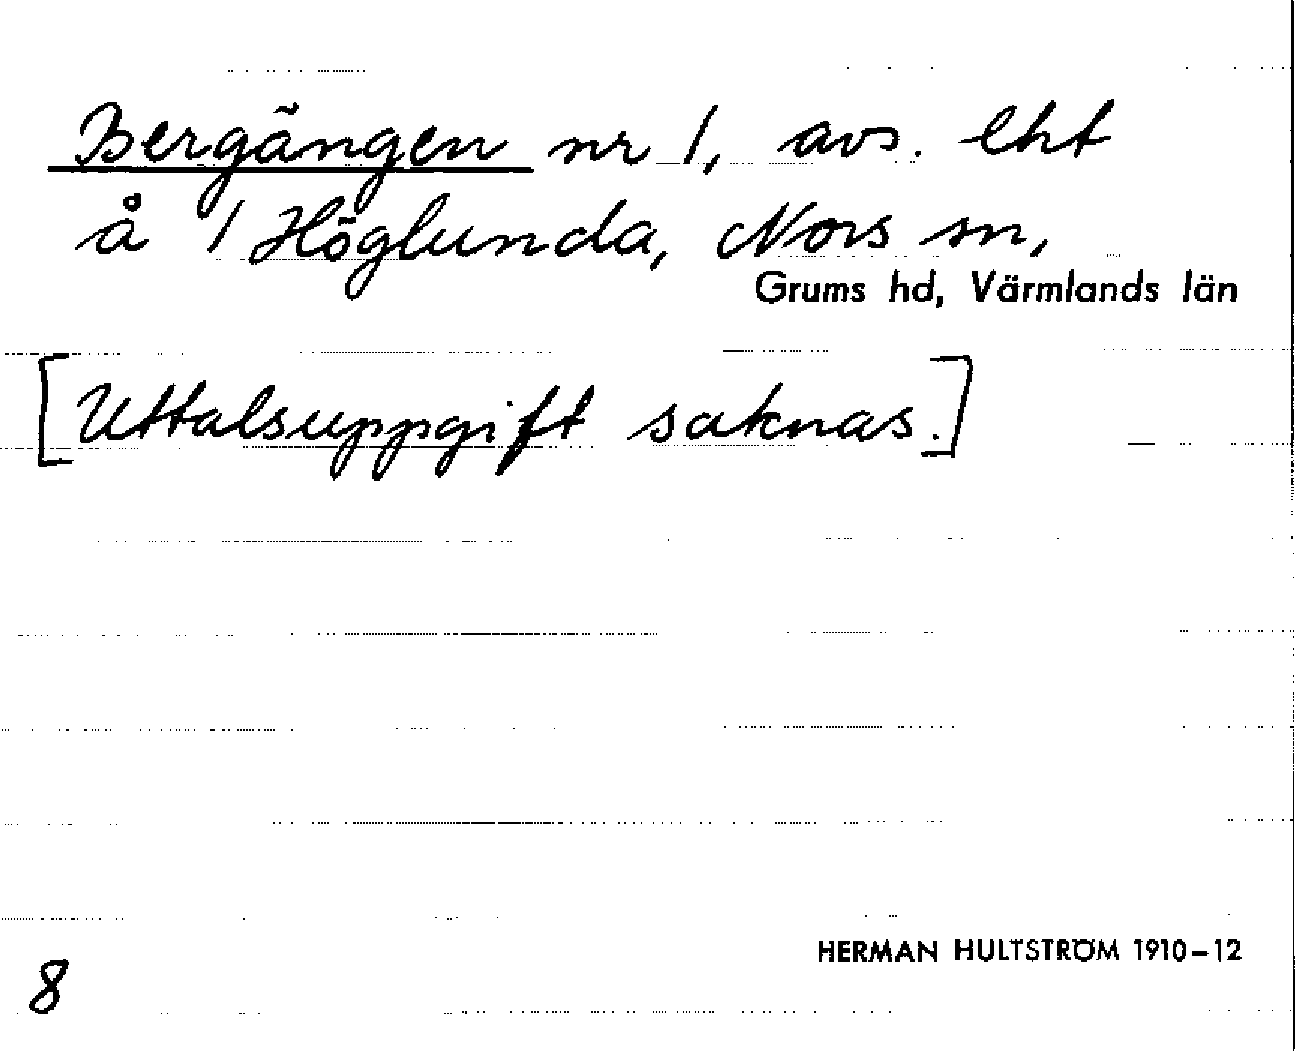 Bergängen nr 1, avs. lht
å 1 Höglunda, Nors sn,
Grums hd, Värmlands län
[Uttalsuppgift saknas.]
HERMAN HULTSTRÖM 1910–12
8